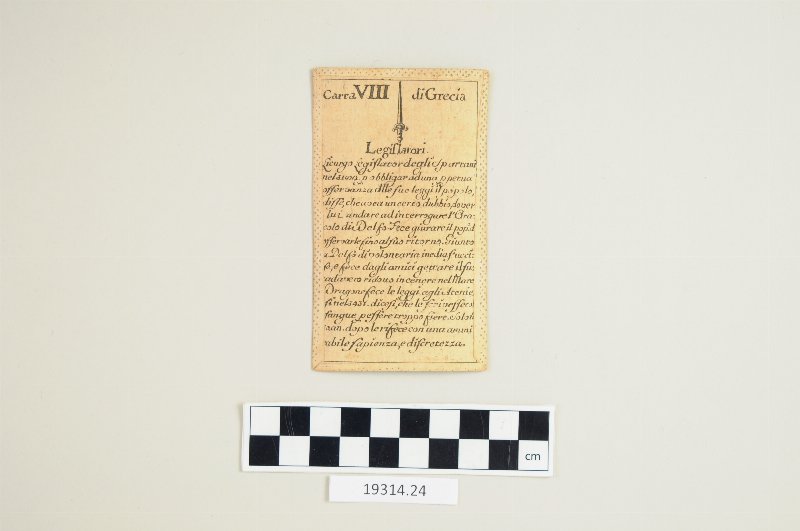 Carta VIII di Grecia
Legislatori.
Licurgo Legislator degli Spartani
obbligar ad una ppetua
osservanza delle sue leggi il popolo,
disse, che avea un certo dubbio, dover
lui andare ad interrogare l'Ora-
colo di Delfo. Fece giurare il popol
osservarle sino al suo ritorno. Giunto
a Delfo di volontaria inedia
e fece dagli amici gettare il suo
cadavero ridotto in cenere nel Mare
Dragone fece le leggi agli Ateniesi
dicasi, che le
sangue, p essere troppo fiere. Solon
dopo le rifece con una ammi
rabile sapienza, e discretezza.
cm
19314.24